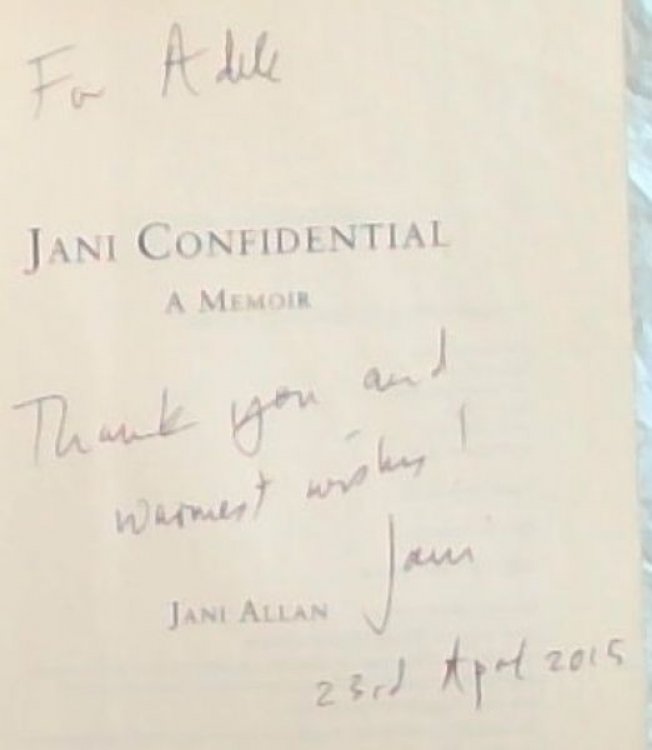 For Adele
JANI CONFIDENTIAL
A MEMOIR
Thank you and
warmest wishes!
Jani
JANI ALLAN
23rd April 2015